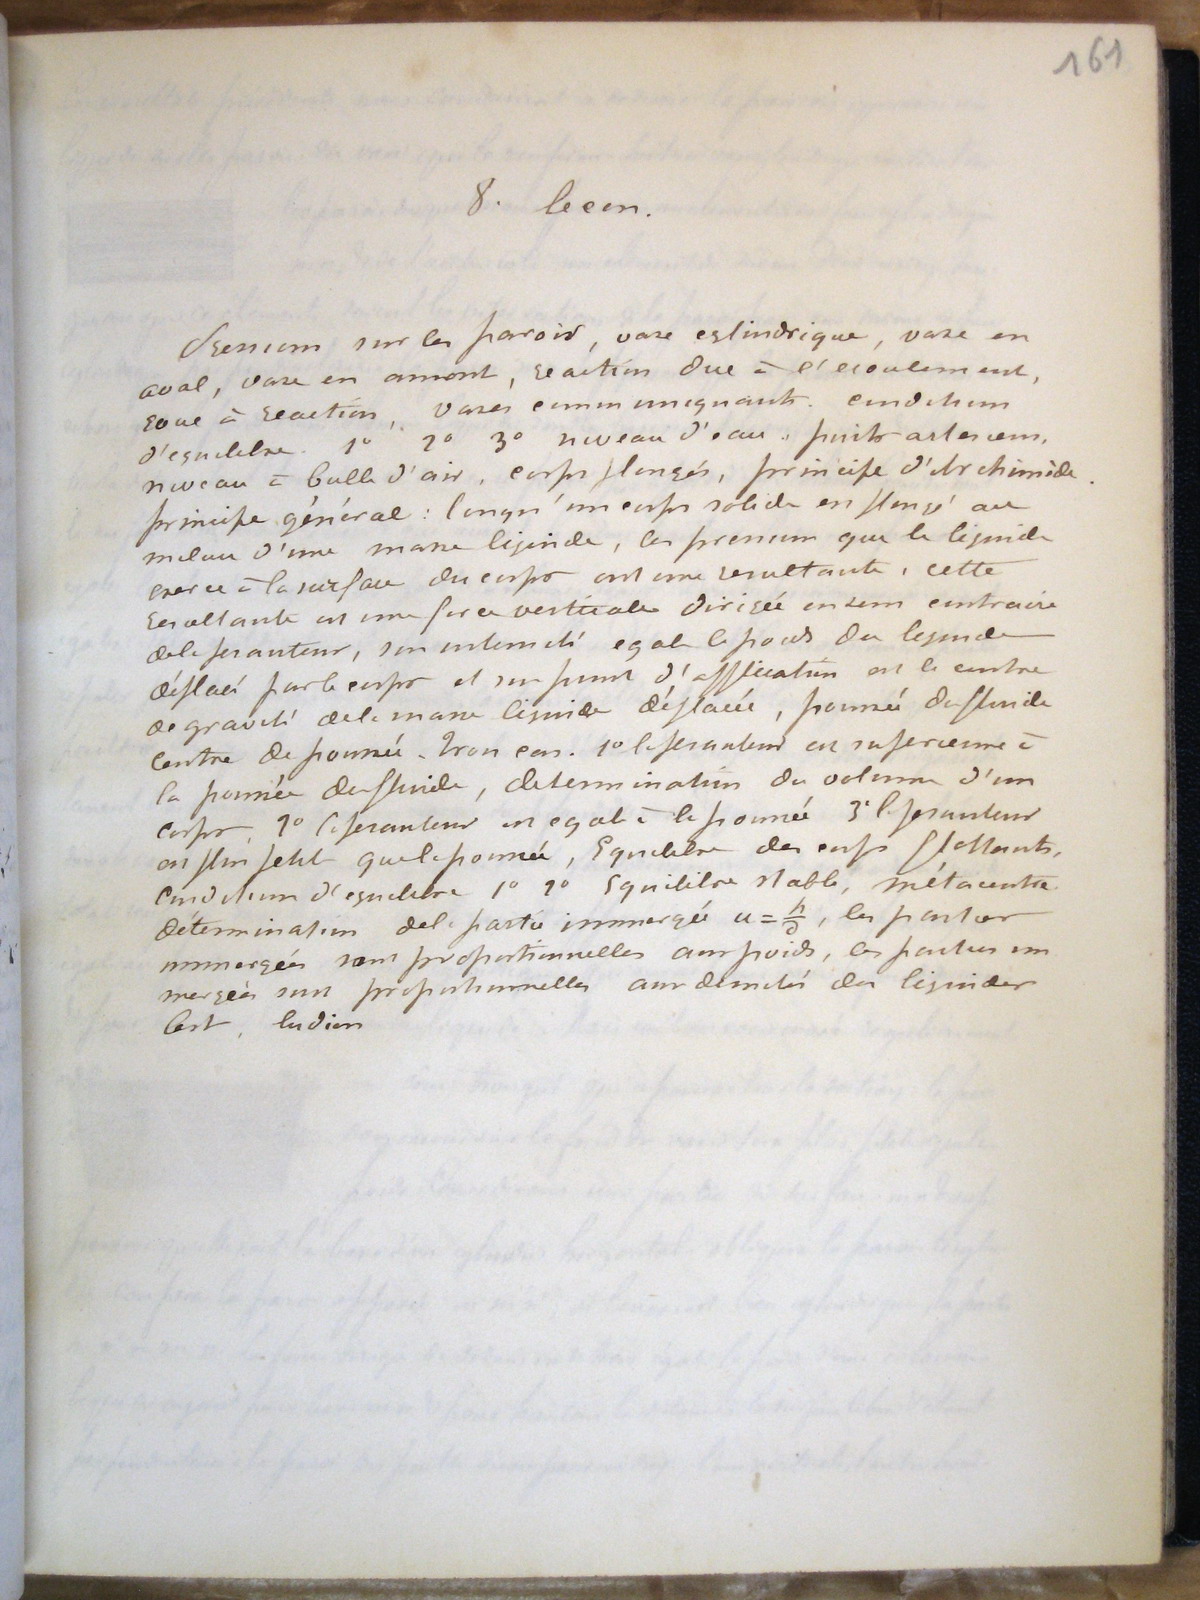 161
8. leçon.
Pressions sur les parois, vase cylindrique, vase en
aval, vase en amont, reaction due à l'ecoulement,
roue à reaction, vases communiquants. conditions
d'equilibre. 1° 2° 3° niveau d'eau. puits artesiens.
niveau à bulle d'air. corps plongés, principe d'Archimède.
principe général: lorsqu'un corps solide est plongé au
milieu d'une masse liquide, les pressions que le liquide
exerce à la surface du corps ont une resultante, cette
resultante est une force verticale dirigée en sens contraire
de la pesanteur, son intensité egale le poids du liquide
déplacé par le corps et son point d'application est le centre
de gravité de la masse liquide déplacée, poussée du fluide
centre de poussée. Trois cas. 1° la pesanteur est superieure à
la poussée du fluide, determination du volume d'un
corps, 2° la pesanteur est egale à la poussée 3° la pesanteur
est plus petite que la poussée, Equilibre des corps flottants,
conditions d'equilibre 1° 2° Equilibre stable, métacentre
détermination de la partie immergée u = p/D, les parties
immergées sont proportionnelles aux poids, les parties im
mergées sont proportionnelles aux densités des liquides
lest, ludion